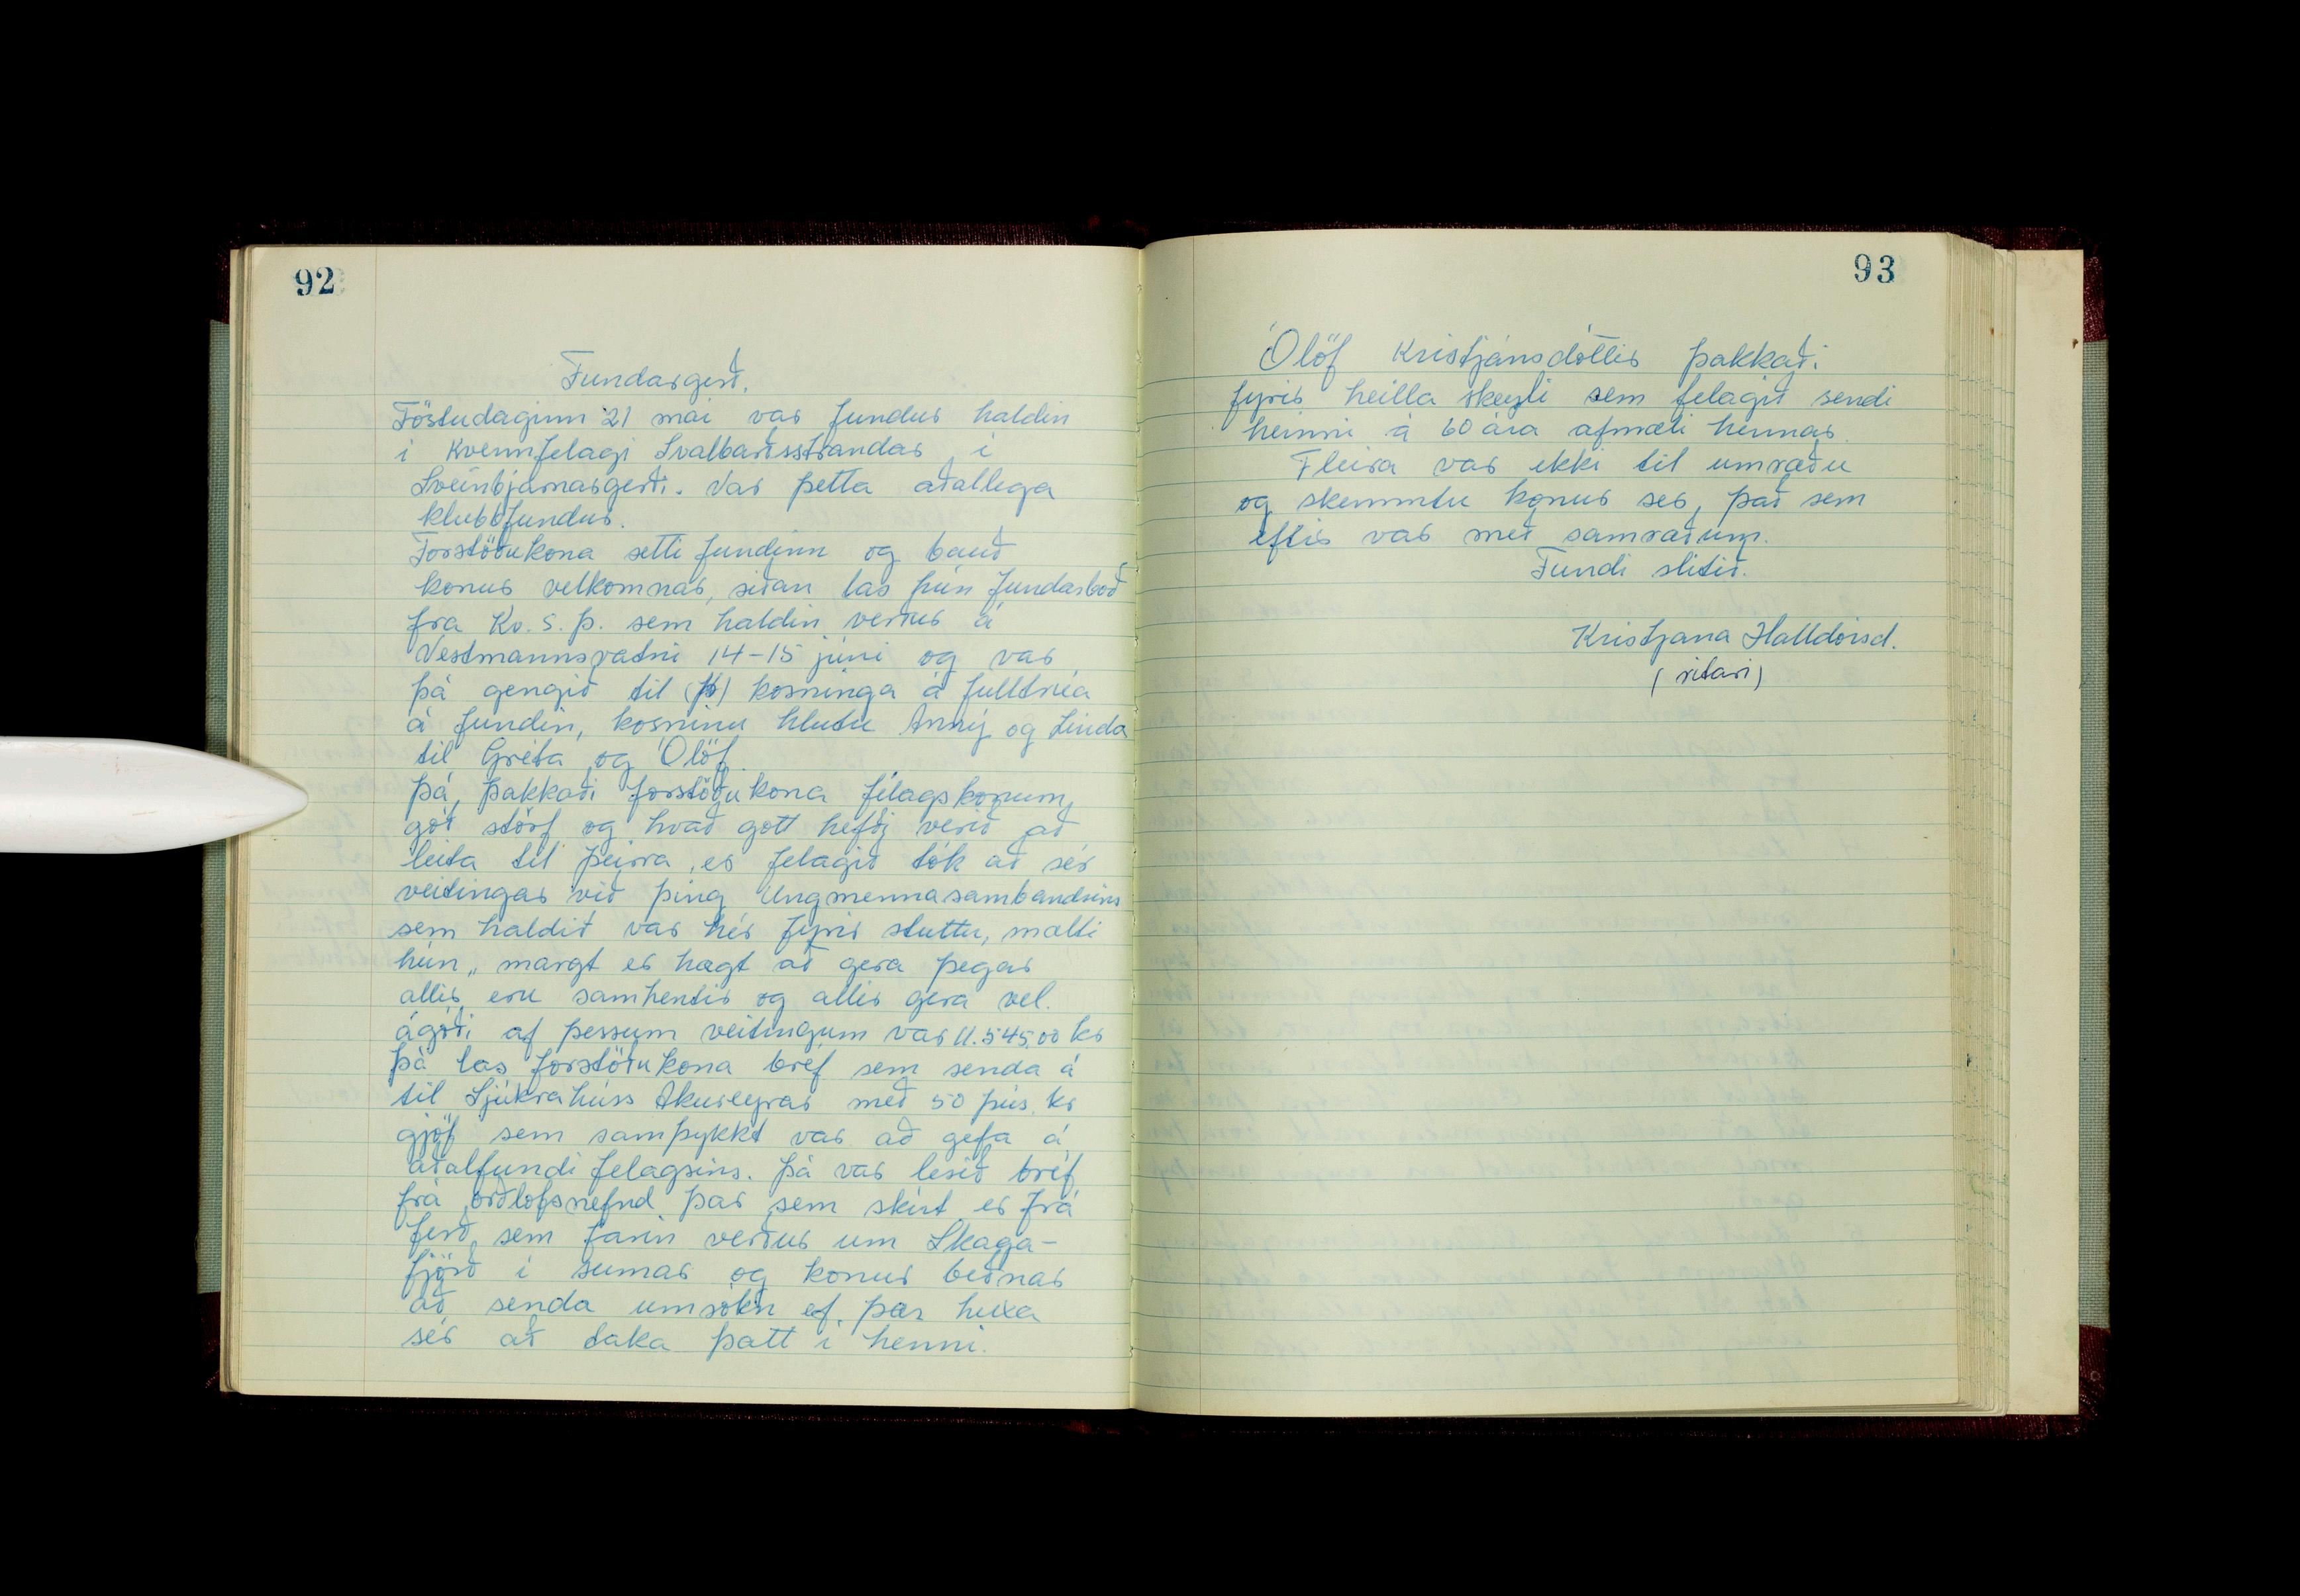 92
Fundargerð.
Föstudaginn 21 mai var fundur haldin
i Kvennfelagi Svalbarðsstrandar i
Sveinbjarnargerði. Var þetta aðallega
klubbfundur.
Forstöðukona setti fundinn og bauð
konur velkomnar, siðan las hún fundarboð
fra Kv. S. Þ. sem haldin verður á
Vestmannsvatni 14-15 júni og var
þá gengið til kosninga á fulltrúa
á fundin, kosninu hlutu Anný og Linda
til Gréta og Ólöf.
Þá þakkaði forstöðukona félagskonum
góð störf og hvað gott hefði verið að
leita til þeirra er felagið tók að sér
veitingar við þing Ungmennasambandsins
sem haldið var hér fyrir stuttu, mælti
hún „ margt er hægt að gera þegar
allir eru samhentir og allir gera vel.
ágóði af þessum veitingum var 11.545,00 kr
Þá las forstöðukona bref sem senda á
til Sjúkrahúss Akureyrar með 50 þús. kr
gjöf sem samþykkt var að gefa á
aðalfundi felagsins. Þá var lesið bréf
frá orðlofsnefnd þar sem skírt er frá
ferð sem farin verður um Skaga-
fjörð i sumar og konur beðnar
að senda umsókn ef þær huxa
sér að taka þatt i henni.
93
Ólöf Kristjánsdóttir þakkaði
fyrir heilla skeyti sem felagið sendi
heinni á 60 ára afmæli hennar.
Fleira var ekki til umræðu
og skemmtu konur ser, það sem
eftir var með samræðum.
Fundi slitið.
Kristjana Halldórsd.
(ritari)